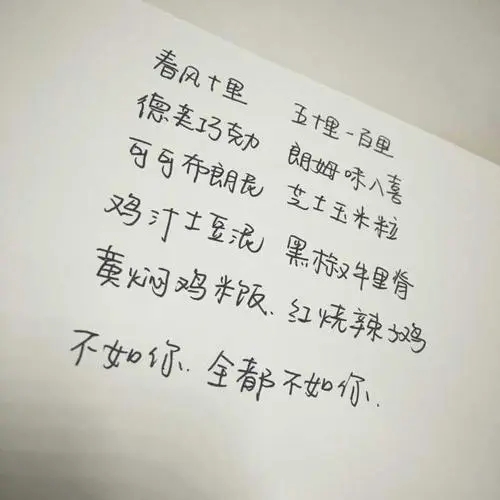 春风十里 五十里一百里
德芙巧克力 朗姆味八喜
可可布朗尼 芝士玉米粒
鸡汁土豆泥 黑椒牛里脊
黄焖鸡米饭、红烧辣子鸡
不如你、全都不如你、